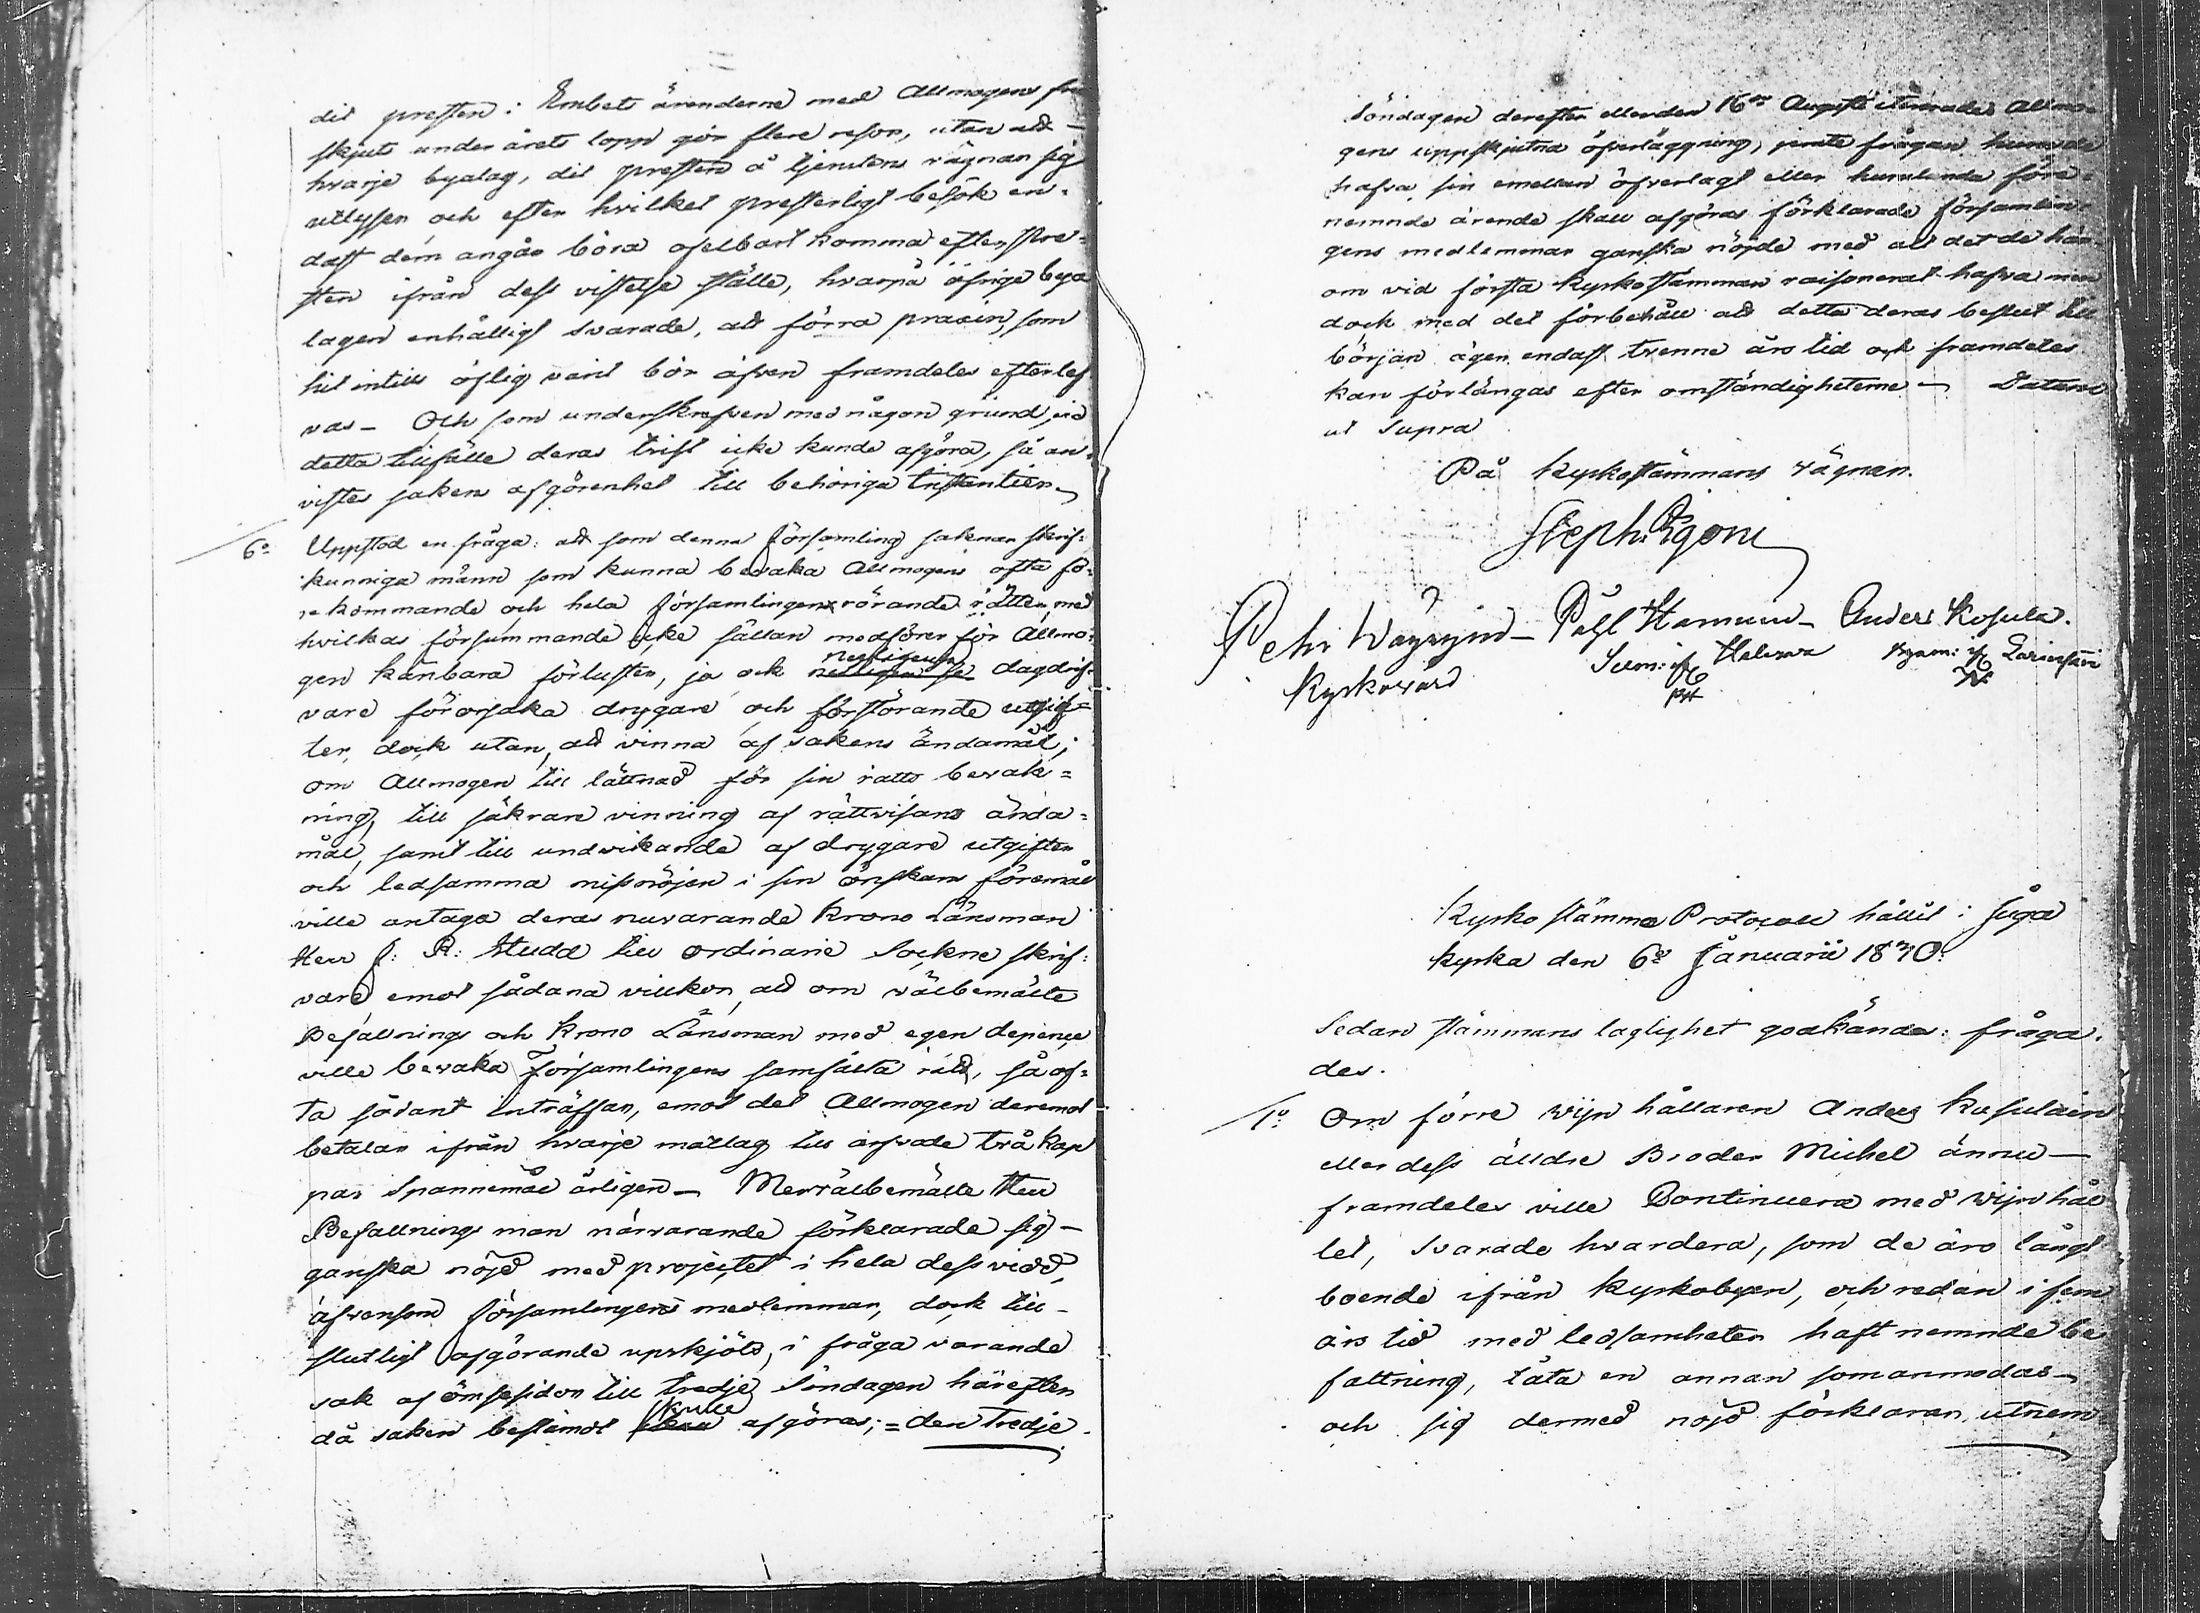 dit presten i Embets ärenderne med Allmogens fri
skjuts under årets lopp gör flere resor, utan att
hvarje byalag, dit presten å tjenstens vägnar sig
utlyser och efter hvilket presterligt besök en-
dast dem angår böra ofelbart komma efter pre-
sten ifrån dess vistelse ställe, hvarpå öfrige bya
lagen enhälligt svarade, att förra praxin, som
hit intills öflig varit bör äfven framdeles efterlef
vas – Och som underskrefven med någon grund vid
detta tillfälle deras tvist icke kunde afgöra, så an-
vistes saken afgörenhet till behöriga Instantier.
6o Uppstod en fråga: att som denna Församling saknar skrif-
kunniga männ som kunna bevaka Allmogens ofta fö-
rekommande och hela Församlingen rörande rätter, med
hvilkas försummande icke sällan medförer för Allmo-
gen känbara förluster, ja och dagdrif-
vare förorsaka drygare och förstörande utgif-
ter, dock utan att vinna af sakens ändamål;
om Allmogen till lättnad för sin rätts bevak=
ning, till säkrare vinning af rättvisans ända=
mål, samt till undvikande af drygare utgifter
och ledsamma misnöjen i sin önskans föremål
ville antaga deras nuvarande Krono Länsman
Herr J: R: Hudd till ordinarie Sockne skrif-
vare emot sådana villkor, att om välbemälte
Befallnings och Krono Länsman med egen depence
ville bevaka Församlingens samfälta rätt, så of=
ta sådant inträffar, emot det Allmogen deremot
betalar ifrån hvarje matlag till arfvode två kap
par Spannemål årligen – Merrälbemälte Herr
Befallnings man närvarande förklarade sig –
ganska nöjd med projectet i hela dess vidd,
äfvensom Församlingens medlemmar, dock till –
slutligt afgörande upskjöts, i fråga varande
sak af ömsesidor till tredje Söndagen härefter
då saken bestämdt skulle afgöras; = den tredje
Söndagen derefter eller den 16de Augusti Allmo
gens uppskjutna öfverläggning, jemte frågan huru de
hafva sin emellan öfverlagt eller hurulunda före-
nemnde ärende skall afgöras förklarade Församlin-
gens medlemmar ganska nöjde med att det de här
om vid första Kyrkostämman raisonerat hafva men
dock med det förbehåll att detta deras beslut till
början äger endast trenne års tid och framdeles
kan förlängas efter omständigheterne – Datum
ut Supra
På Kyrkostämmans vägnar.
Steph: Egoni
Petr Wäyryin – Påhl Hamuna – Anders Kosula.
Kyrkovärd
PH
Kyrko stämma Protocoll hållit i Sjga
kyrka den 6e Januarii 1830.
Sedan stämmans laglighet godkändes: fråga-
des.
1o Om förre wijn hållaren Anders Kosulain
eller dess älldre Broder Michel ännu –
framdeles ville Continuera med wijn hål
let, Svarade hvardera, som de äro långt
boende ifrån Kyrkobyen, och redan i fem
års tid med ledsamheter haft nemnde be
fattning, låta en annan som anmodas –
och sig dermed nöjd förklarar, utnem